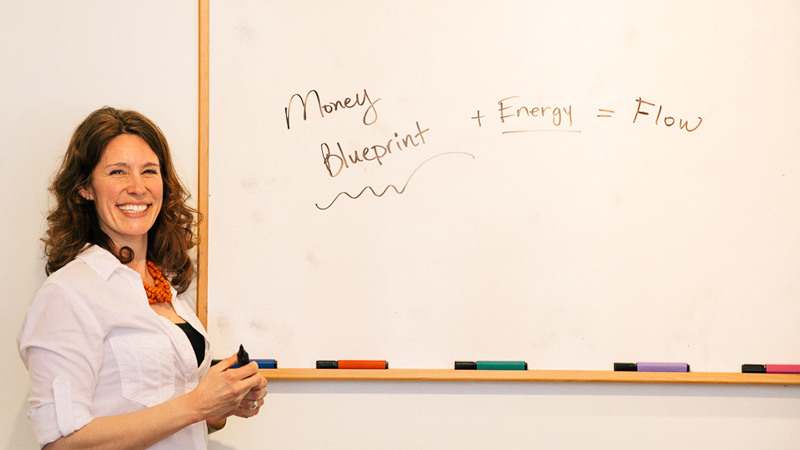 Money
Blueprint + Energy = Flow